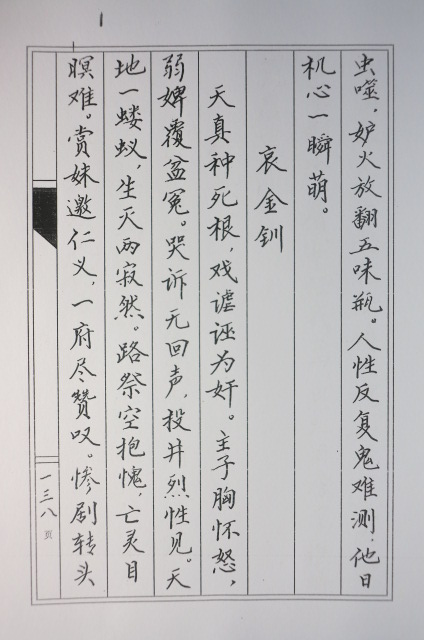 虫噬，妒火放翻五味瓶。人性反复鬼难测，他日
机心一瞬萌。
哀金钏
天真种死根，戏谑诬为奸。主子胸怀怒，
弱婢覆盆冤。哭诉无回声，投井烈性见。天
地一蝼蚁，生灭两寂然。路祭空抱愧，亡灵目
瞑难。赏妹邀仁义，一府尽赞叹。惨剧转头
一三八页